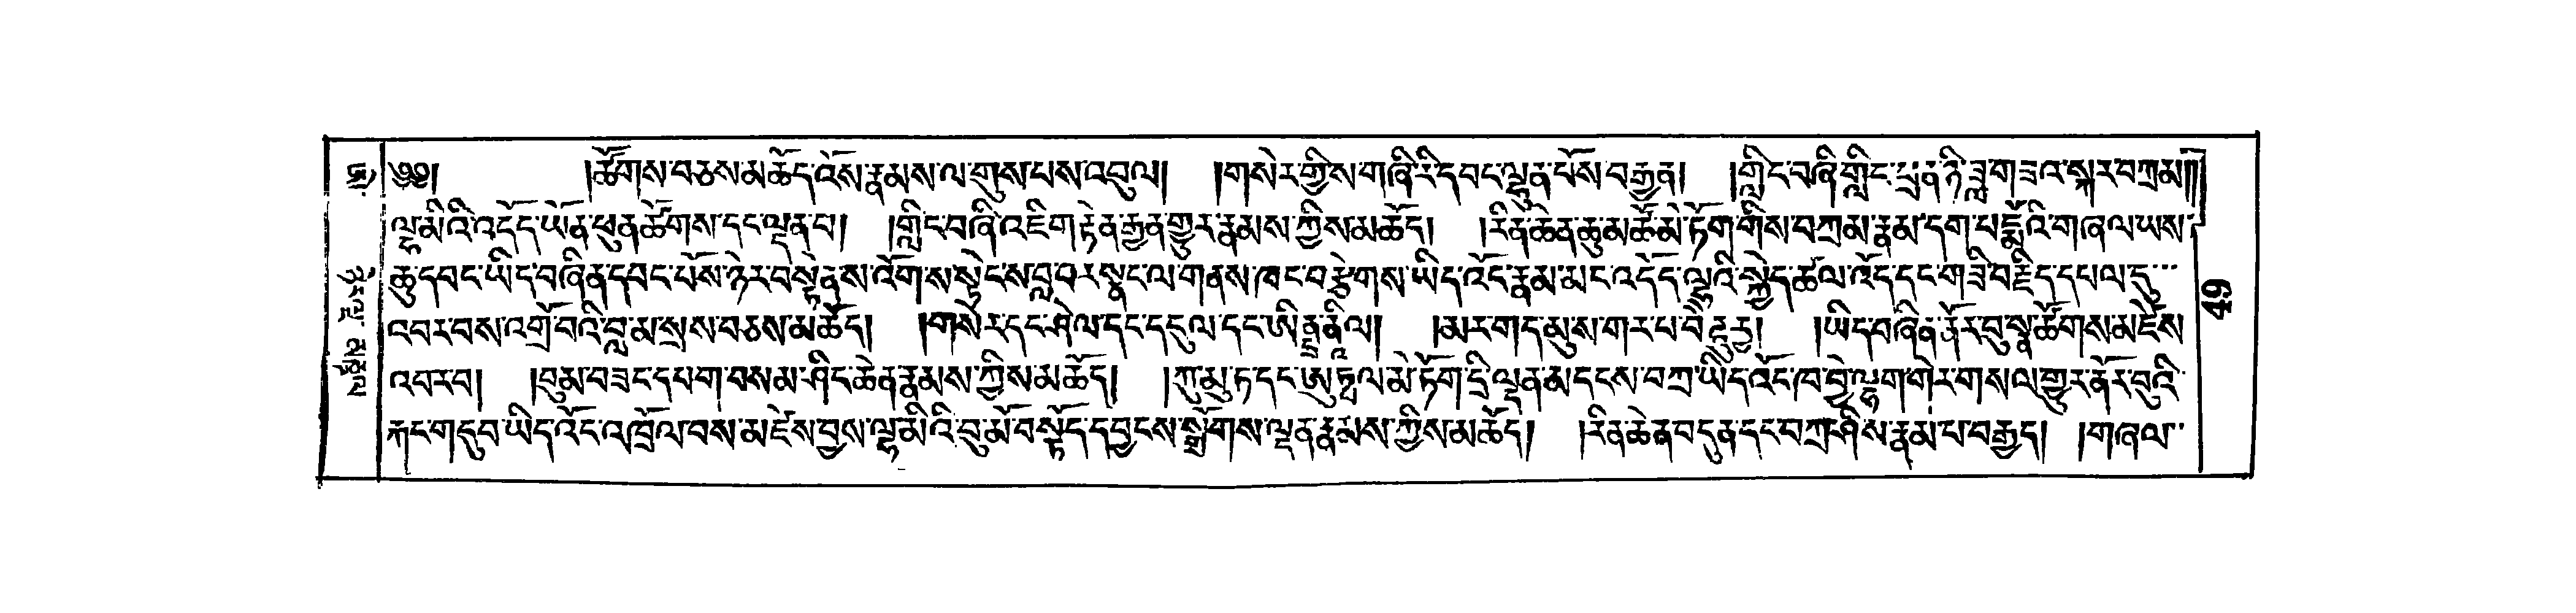 ༄༅། །ཚོགས་བཅས་མཆོད་འོས་རྣམས་ལ་གུས་པས་འབུལ། །གསེར་གྱིས་གཞི་རི་དབང་ལྷུན་པོས་བརྒྱན། །གླིང་བཞི་གླིང་ཕྲན་ཉི་ཟླ་གཟའ་སྐར་བཀྲམ༎
ལྷ་མིའི་འདོད་ཡོན་ཕུན་ཚོགས་དང་ལྡན་པ། །གླིང་བཞི་འཇིག་རྟེན་རྒྱན་གྱུར་རྣམས་ཀྱིས་མཆོད། །རིན་ཆེན་ཆུ་མཚོ་མེ་ཏོག་གིས་བཀྲམ་རྣམ་དག་པདྨོའི་གཞལ་ཡས་
ཆུ་དབང་ཡིད་བཞིན་དབང་པོས་ཉེར་བསྟེནས་འོག་ས་སྟེང་ས་བླ་བར་སྣང་ལ་གནས་ཁང་བརྩེགས་ཡིད་འོང་རྣམ་མང་འདོད་ལྷའི་སྐྱེད་ཚལ་འོད་དང་གཟི་བརྗིད་དཔལ་དུ་
འབར་བས་འགྲོ་བའི་བླ་མ་སྲས་བཅས་མཆོད། །གསེར་དང་ཤེལ་དང་དངུལ་དང་ཨིནྡྲ་ནཱི་ལ། །མ་རགད་མུ་ས་གར་པ་བཻ་ཌཱུརྱ། །ཡིད་བཞིན་ནོར་བུ་སྣ་ཚོགས་མཛེས་
འབར་བ། །བུམ་བཟང་དཔག་བསམ་ཤིང་ཆེན་རྣམས་ཀྱིས་མཆོད། །ཀུ་མུ་ཏ་དང་ཨུཏྤལ་མེ་ཏོག་དྲི་ལྡན་མ་དངས་བཀྲ་ཡིད་འོང་ཁ་བྱེ་ལྷག་གེར་གསལ་གྱུར་ནོར་བུའི་
རྐང་གདུབ་ཡིད་འོང་འཁྲོལ་བས་མཛེས་བྱས་ལྷ་མིའི་བུ་མོ་བསྟོད་དབྱངས་སྒྲོགས་ལྡན་རྣམས་ཀྱིས་མཆོད། །རིན་ཆེན་བདུན་དང་བཀྲ་ཤིས་རྣམ་པ་བརྒྱད། །གཞལ་